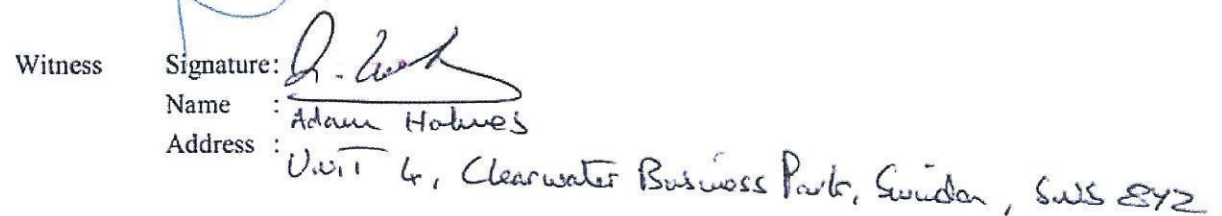 Witness Signature:
Name : Adam Holmes
Address : Unit 4, Clearwater Business Park, Swindon, SN5 8YZ